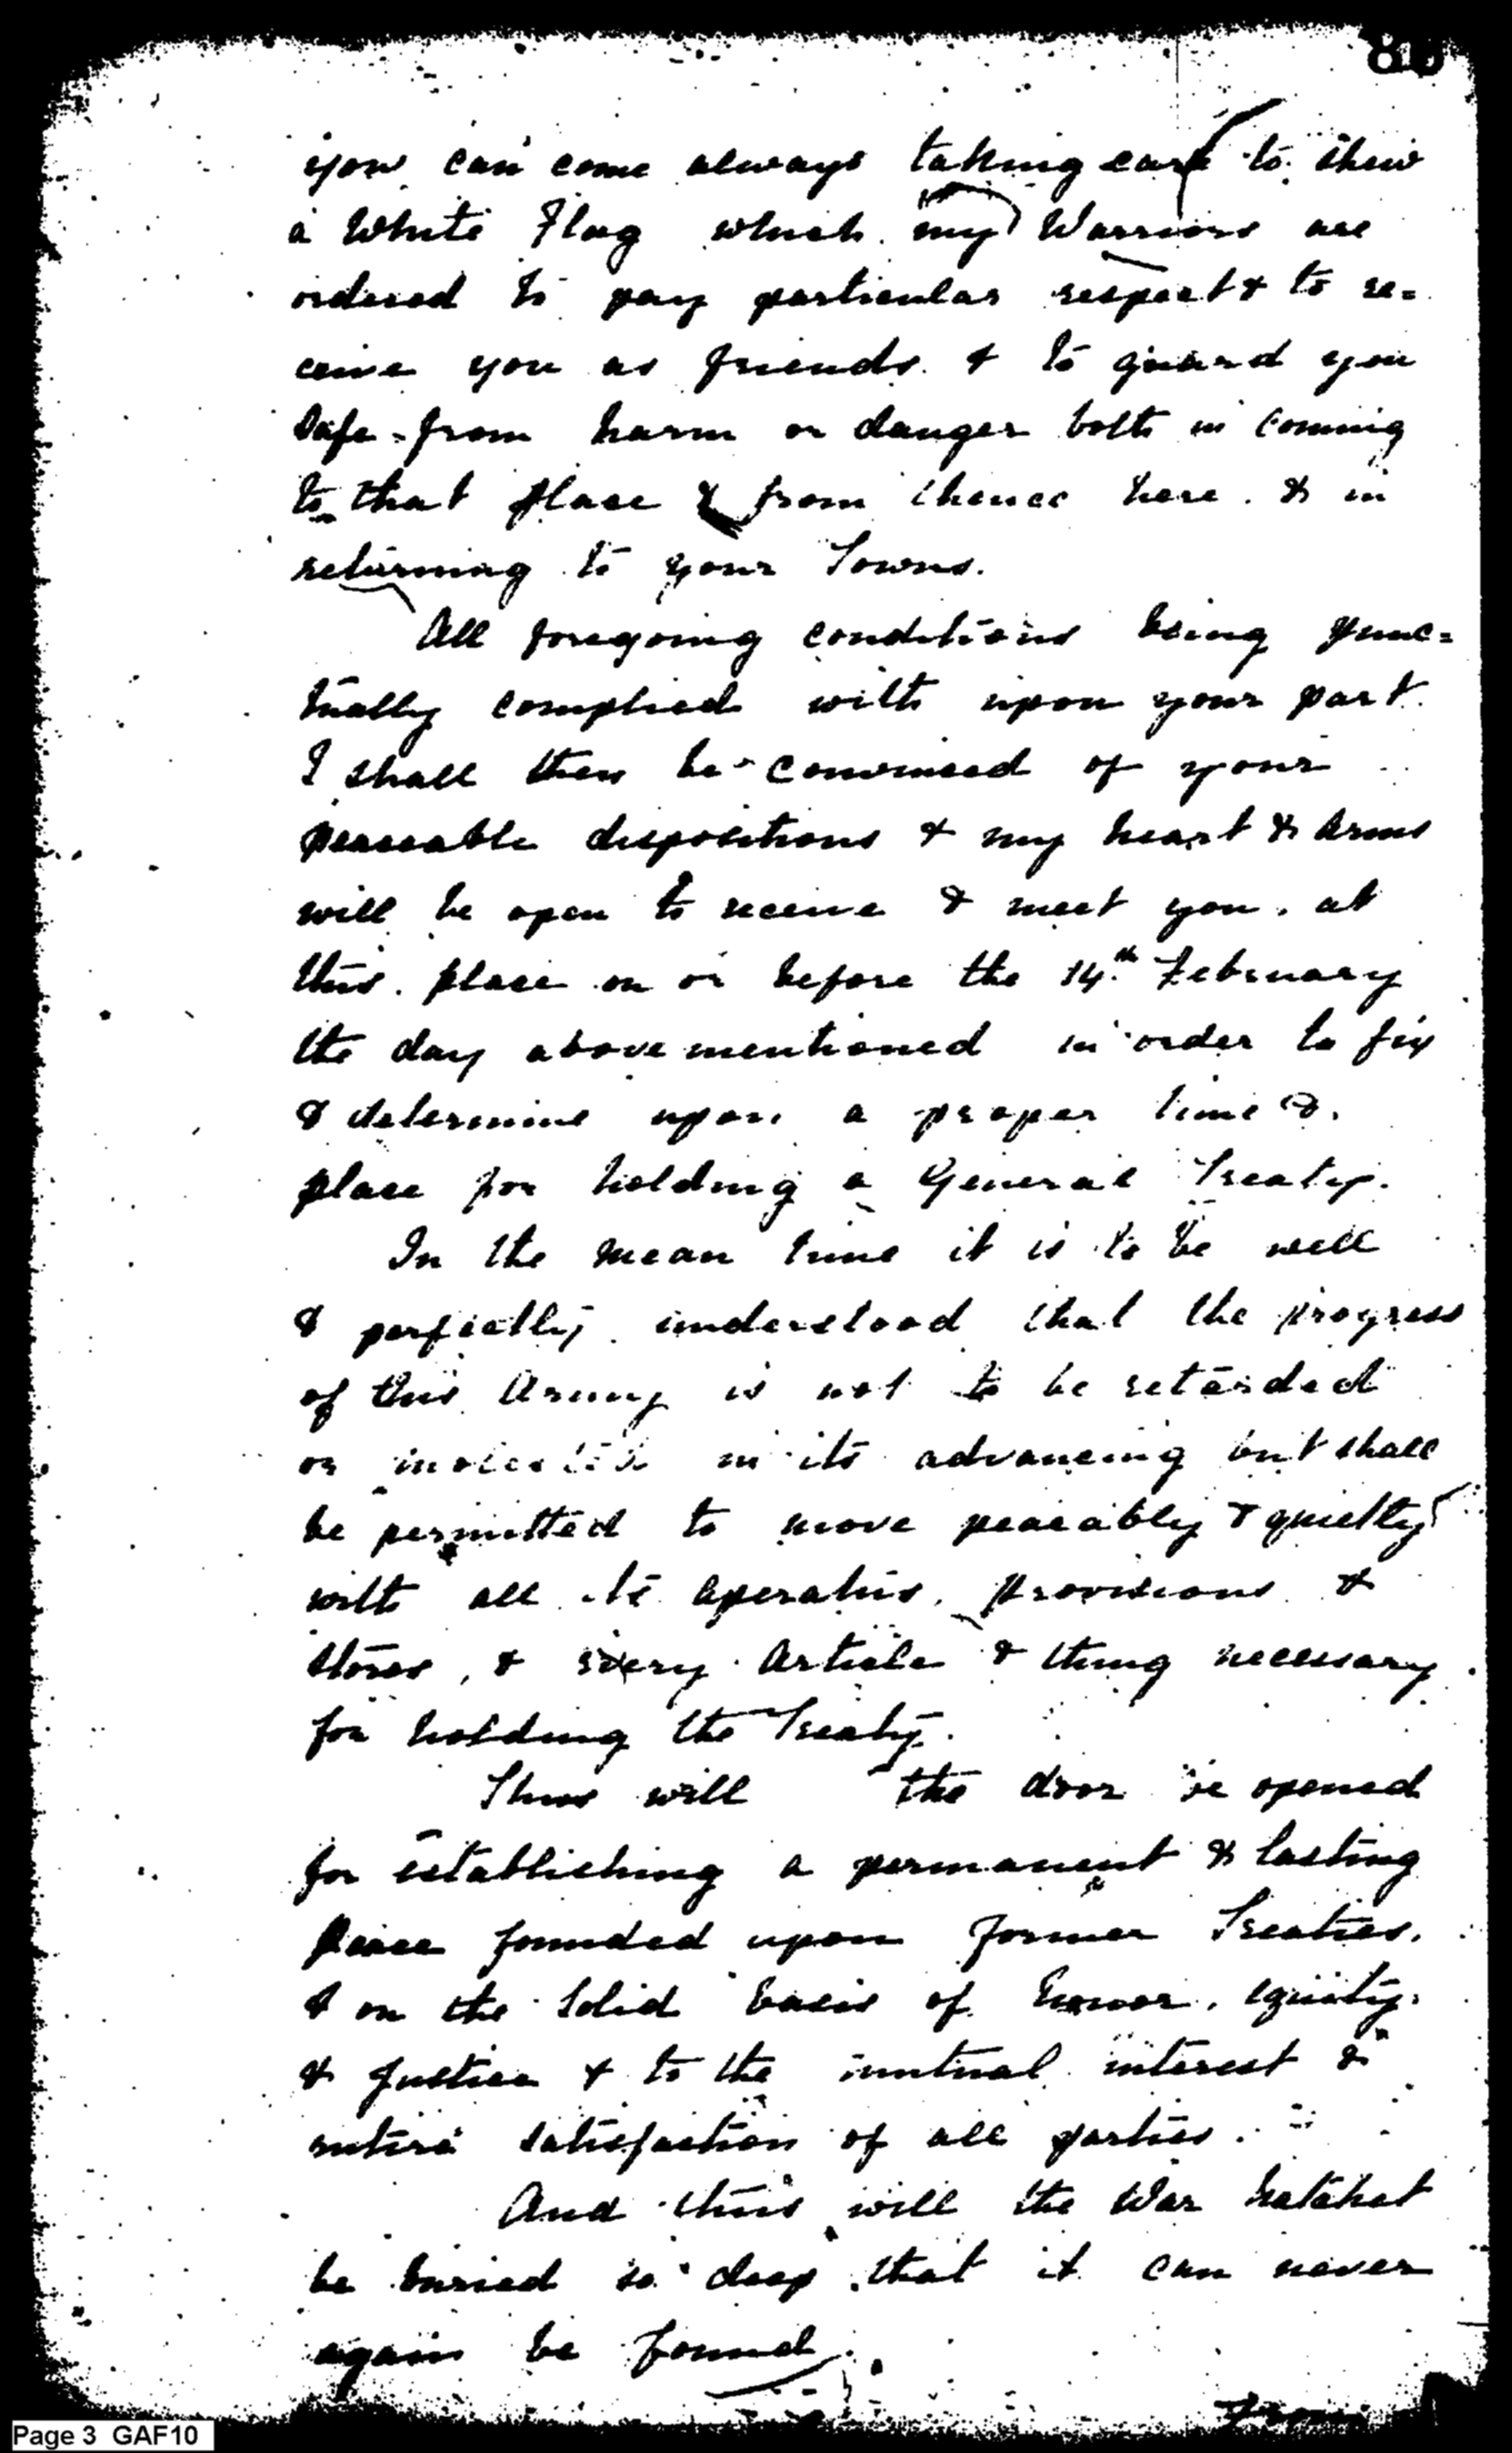 you can come always taking care to shew
a White Flag which my Warriors are
ordered to pay particular respect & to re=
ceive you as friends & to guard you
Safe from harm or danger both in Coming
to that place & from thence here & in
returning to your Towns.
All foregoing conditions being punc=
tually complied with upon your part
I shall then be convinced of your
peaceable dispositions & my heart & Arms
will be open to receive & meet you at
this place on or before the 14th February
the day above mentioned in order to fix
& determine upon a proper time &
place for holding a General Treaty.
In the mean time it is to be well
& perfectly understood that the progress
of this Army is not to be retarded
or molested in its advancing but shall
be permitted to move peaceably & quietly
with all its Aperatus, provisions &
stores, & every Article & thing necessary
for holding the Treaty.
Thus will the door be opened
for establishing a permanent & lasting
Peace founded upon former Treaties,
& on the Solid basis of honor, equity,
& Justice & to the mutual interest &
entire satisfaction of all parties.
And thus will the War hatchet
be buried so deep that it can never
again be found.
from
Page 3 GAF10